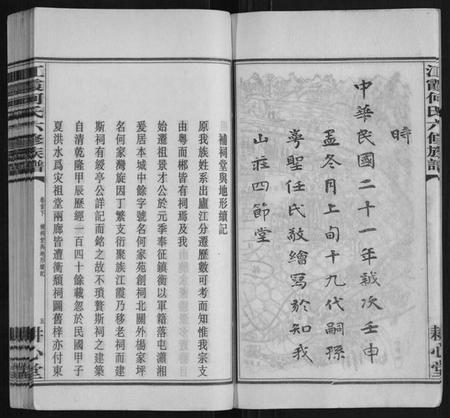 江霞何氏六修族譜
時
中華民國二十一年歲次壬申
孟冬月上旬十九代嗣孫
粵聖任氏敬繪寫於知我
山莊四節堂
耕心堂
補祠堂與地形續記
原我族姓系出廬江分遷歷數可考而知惟我宗支
由粵而郴皆有祠焉及我
始遷祖景才公於元季奉征鎮衡以軍籍落屯瀟湘
爰居本城中餘字號名何家苑創祠北關外楊家坪
名何家灣旋因丁繁支衍聚族江霞乃移老祠而建
斯祠有級亭公詳記而銘之故不瑣贅斯祠之建築
自清乾隆甲辰歷經一百四十餘載忽於民國甲子
夏洪水爲災祖堂兩廊皆遭衝頹祠圖舊梓亦付東
江霞何氏六修族譜
耕心堂